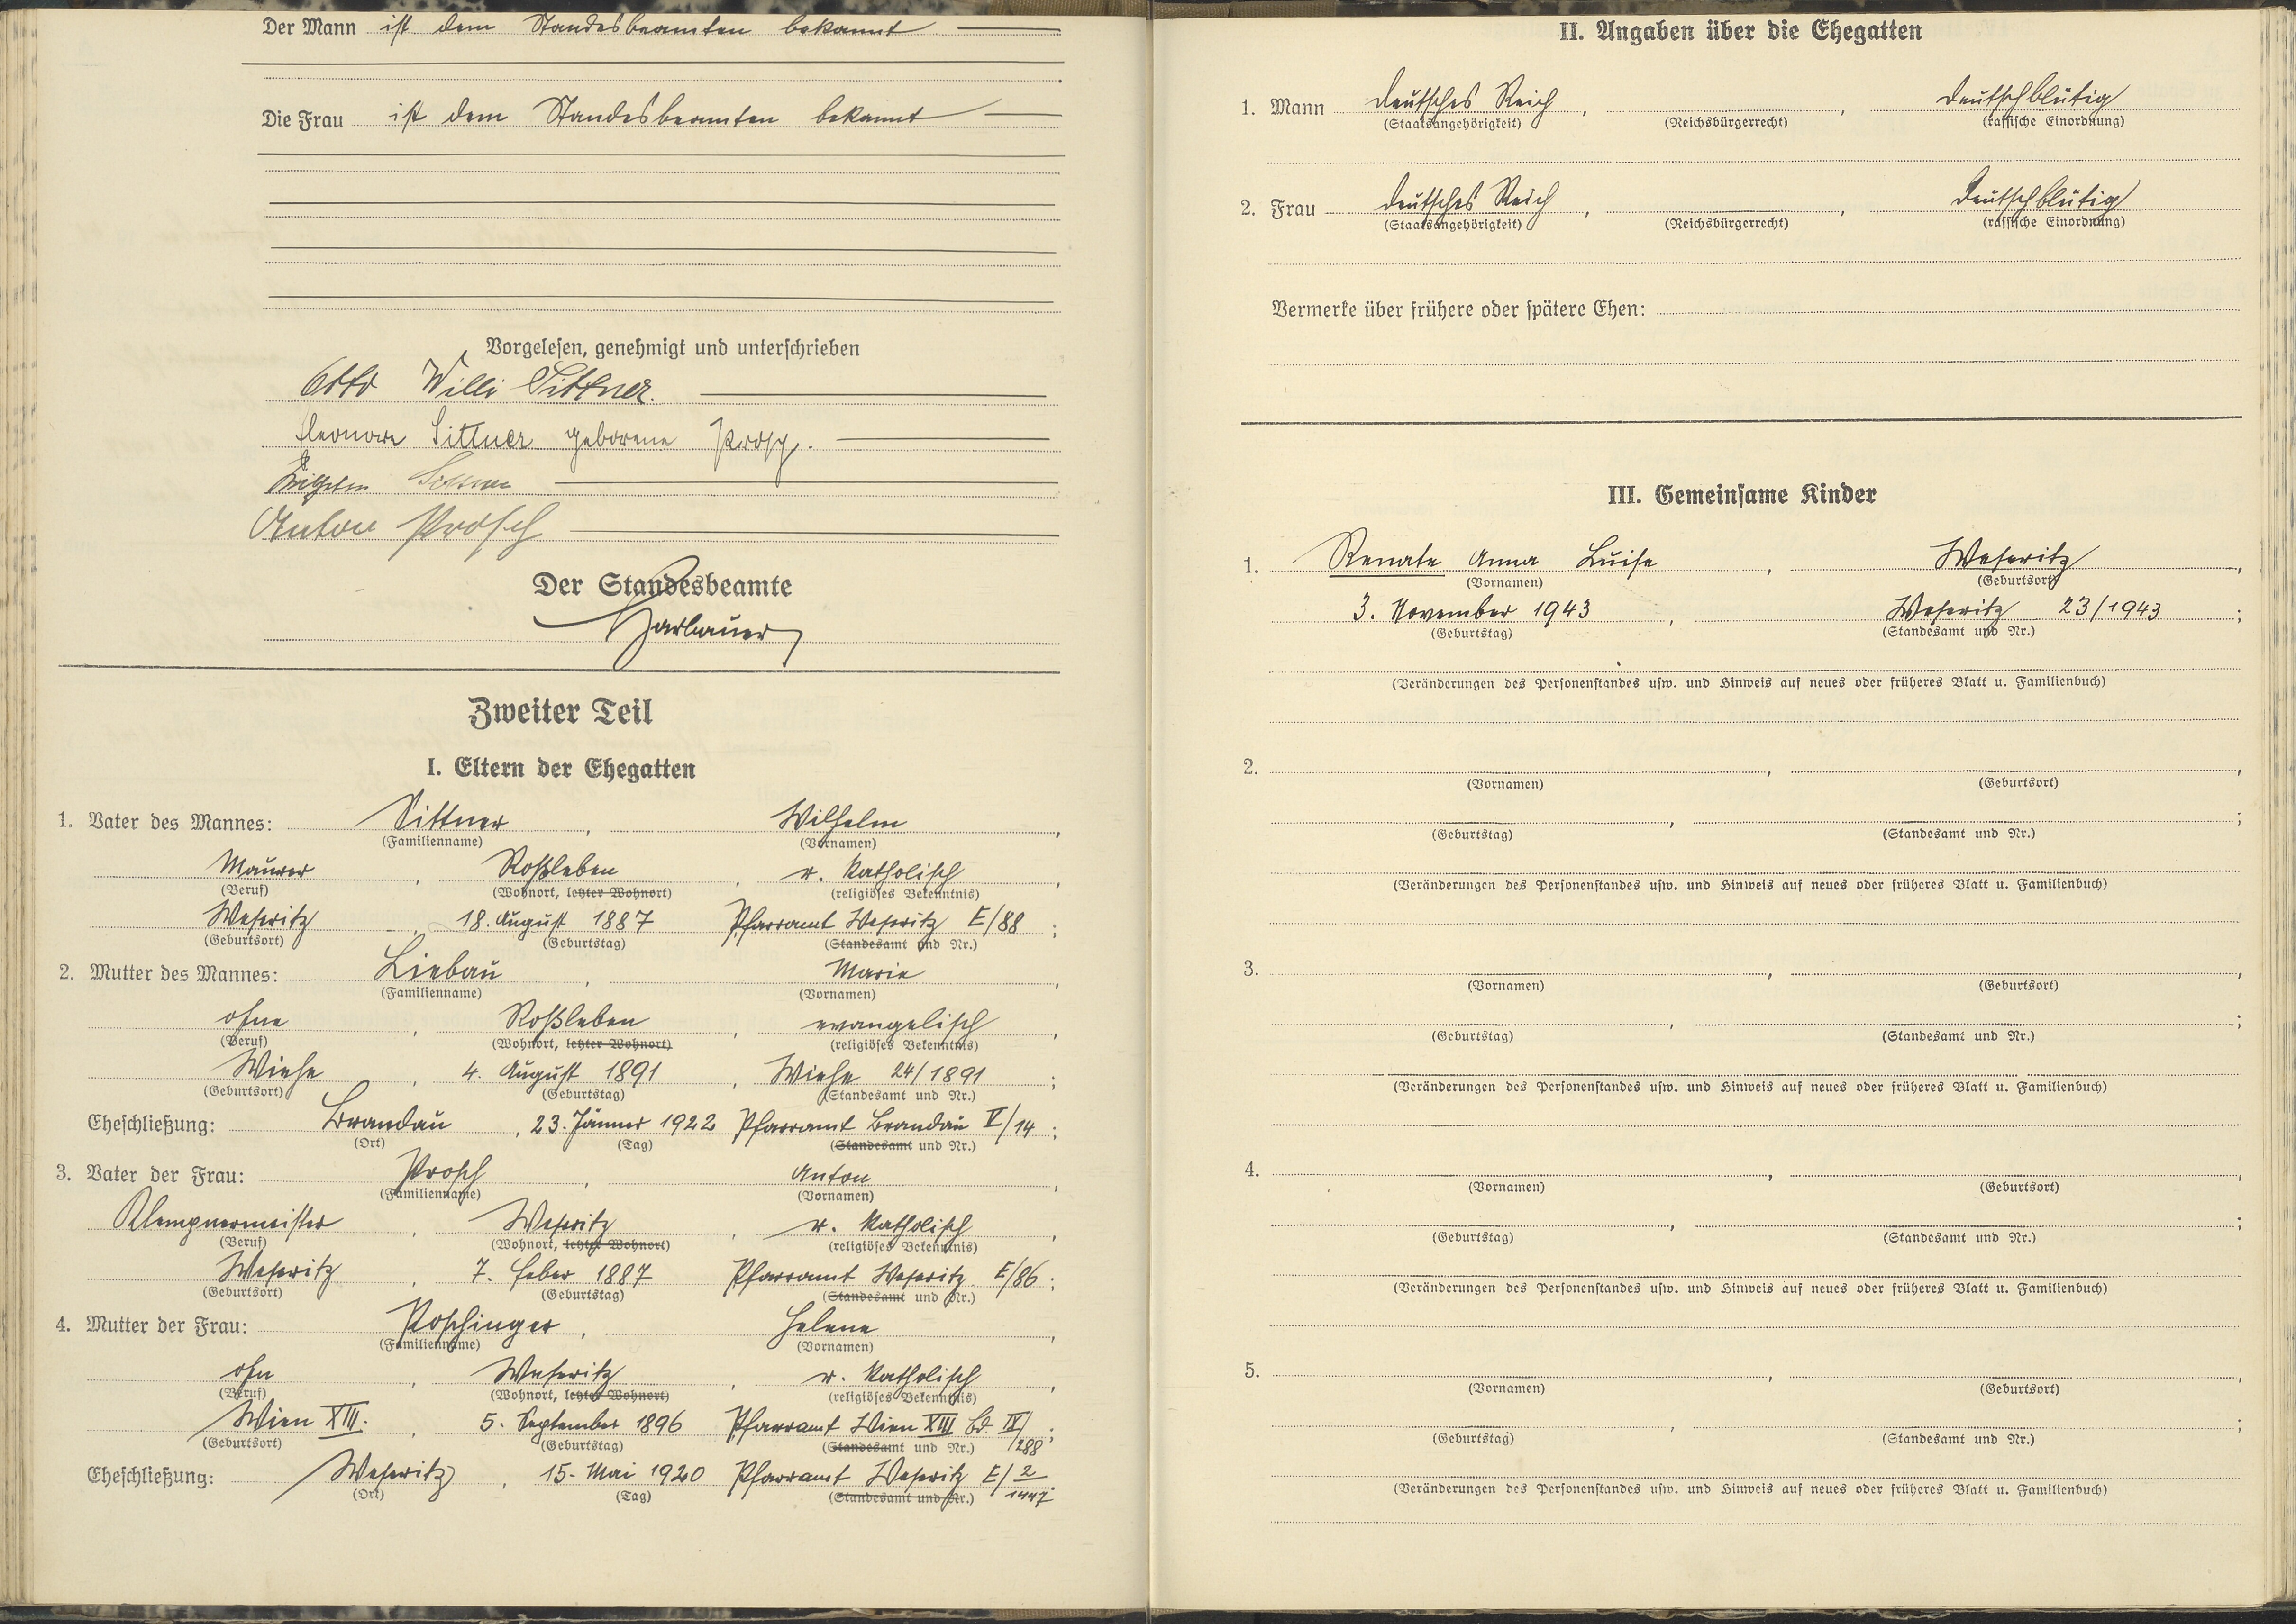 Der Mann ist dem Standesbeamten bekannt
Die Frau ist dem Standesbeamten bekannt
Vorgelesen, genehmigt und unterschrieben
Otto Willi Sittner.
Eleonore Sittner geborene Prosch.
Wilhelm Sittner
Anton Prosch
Der Standesbeamte
Zweiter Teil
I. Eltern der Ehegatten
1. Vater des Mannes: Sittner, Wilhelm,
(Familienname) (Vornamen)
Maurer, Roßleben, r. katholisch,
(Beruf) (Wohnort, letzter Wohnort) (religiöses Bekenntnis)
Weseritz, 18. August 1887 Pfarramt Weseritz E/88;
(Geburtsort) (Geburtstag) (Standesamt und Nr.)
2. Mutter des Mannes: Liebau, Marie,
(Familienname) (Vornamen)
ohne, Roßleben, evangelisch,
(Beruf) (Wohnort, letzter Wohnort) (religiöses Bekenntnis)
Wiehe, 4. August 1891, Wiehe 24/1891;
(Geburtsort) (Geburtstag) (Standesamt und Nr.)
Eheschließung: Brandau, 23. Jänner 1922 Pfarramt Brandau V/14;
(Ort) (Tag) (Standesamt und Nr.)
3. Vater der Frau: Prosch, Anton,
(Familienname) (Vornamen)
Klempnermeister, Weseritz, r. katholisch,
(Beruf) (Wohnort, letzter Wohnort) (religiöses Bekenntnis)
Weseritz, 7. Feber 1887 Pfarramt Weseritz E/86;
(Geburtsort) (Geburtstag) (Standesamt und Nr.)
4. Mutter der Frau: Poschinger, Helene,
(Familienname) (Vornamen)
ohn, Weseritz, r. katholisch,
(Beruf) (Wohnort, letzter Wohnort) (religiöses Bekenntnis)
Wien XIII., 5. September 1896 Pfarramt Wien XIII Bd. IV/288;
(Geburtsort) (Geburtstag) (Standesamt und Nr.)
Eheschließung: Weseritz, 15. Mai 1920 Pfarramt Weseritz E/2/1447
(Ort) (Tag) (Standesamt und Nr.)
II. Angaben über die Ehegatten
1. Mann deutsches Reich, , deutschblütig
(Staatsangehörigkeit) (Reichsbürgerrecht) (rassische Einordnung)
2. Frau deutsches Reich, , deutschblütig
(Staatsangehörigkeit) (Reichsbürgerrecht) (rassische Einordnung)
Vermerke über frühere oder spätere Ehen:
III. Gemeinsame Kinder
1. Renate Anna Luise, Weseritz,
(Vornamen) (Geburtsort)
3. November 1943, Weseritz 23/1943;
(Geburtstag) (Standesamt und Nr.)
(Veränderungen des Personenstandes usw. und Hinweis auf neues oder früheres Blatt u. Familienbuch)
2. , ,
(Vornamen) (Geburtsort)
, ;
(Geburtstag) (Standesamt und Nr.)
(Veränderungen des Personenstandes usw. und Hinweis auf neues oder früheres Blatt u. Familienbuch)
3. , ,
(Vornamen) (Geburtsort)
, ;
(Geburtstag) (Standesamt und Nr.)
(Veränderungen des Personenstandes usw. und Hinweis auf neues oder früheres Blatt u. Familienbuch)
4. , ,
(Vornamen) (Geburtsort)
, ;
(Geburtstag) (Standesamt und Nr.)
(Veränderungen des Personenstandes usw. und Hinweis auf neues oder früheres Blatt u. Familienbuch)
5. , ,
(Vornamen) (Geburtsort)
, ;
(Geburtstag) (Standesamt und Nr.)
(Veränderungen des Personenstandes usw. und Hinweis auf neues oder früheres Blatt u. Familienbuch)